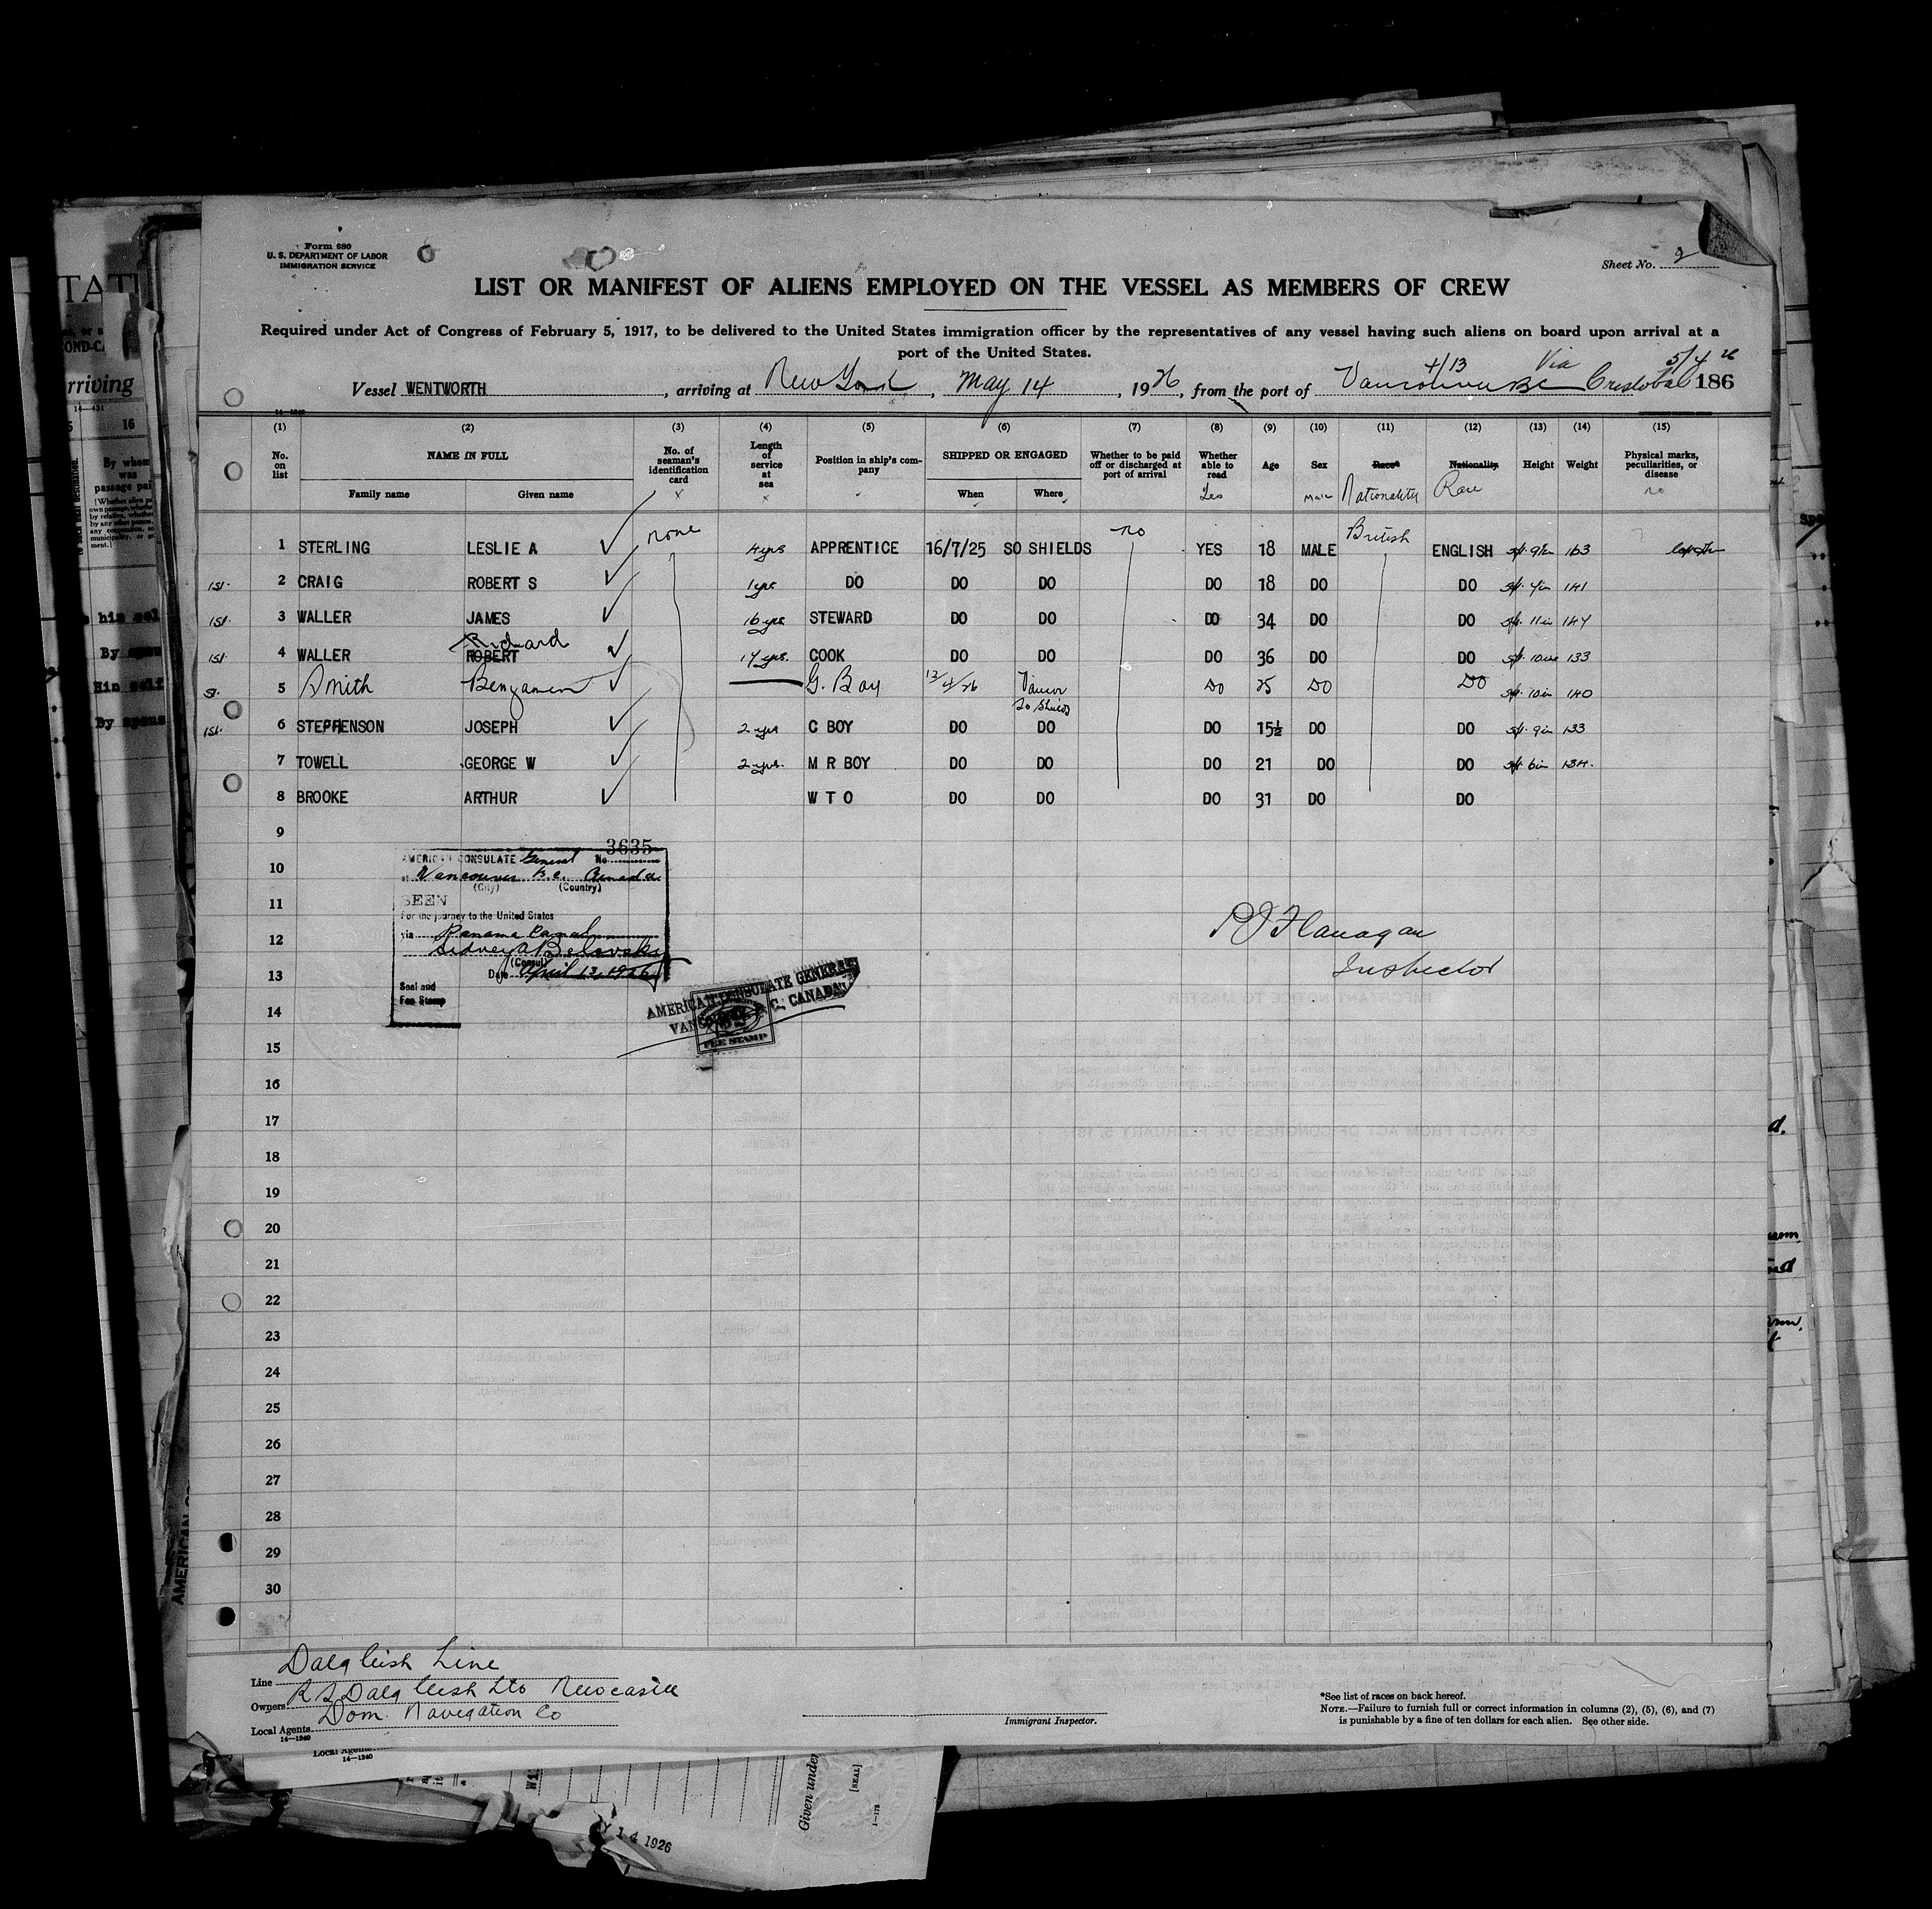 Form 680
U. S. DEPARTMENT OF LABOR
IMMIGRATION SERVICE
Sheet No. 2
LIST OR MANIFEST OF ALIENS EMPLOYED ON THE VESSEL AS MEMBERS OF CREW
Required under Act of Congress of February 5, 1917, to be delivered to the United States immigration officer by the representatives of any vessel having such aliens on board upon arrival at a
port of the United States.
4/13 Via 5/4 26
Vessel WENTWORTH, arriving at New York, May 14, 1926, from the port of Vancouver BC Cristobal 186
14-1240
(1) (2) (3) (4) (5) (6) (7) (8) (9) (10) (11) (12) (13) (14) (15)
No. on list NAME IN FULL No. of seaman's identification card Length of service at sea Position in ship's company SHIPPED OR ENGAGED Whether to be paid off or discharged at port of arrival Whether able to read Age Sex Race* Nationality Height Weight Physical marks, peculiarities, or disease
Family name Given name x x When Where Yes Male Nationality Race no
1 STERLING LESLIE A none 4 yrs APPRENTICE 16/7/25 SO SHIELDS no YES 18 MALE British ENGLISH 5ft. 9in 163
1st. 2 CRAIG ROBERT S 1 yrs DO DO DO DO 18 DO DO 5ft. 4in 141
1st. 3 WALLER JAMES 16 yrs STEWARD DO DO DO 34 DO DO 5ft. 11in 147
1st. 4 WALLER ROBERT Richard 17 yrs. COOK DO DO DO 36 DO DO 5ft. 10in 133
5 Smith Benjamin G. Boy 13/4/26 Vancvr DO 25 DO DO 5ft. 10in 140
So Shields
1st. 6 STEPHENSON JOSEPH 2 yrs C BOY DO DO DO 15½ DO DO 5ft. 9in 133
7 TOWELL GEORGE W 2 yrs. M R BOY DO DO DO 21 DO DO 5ft 6in 134.
8 BROOKE ARTHUR W T O DO DO DO 31 DO DO
9
10
11
12
13
14
15
16
17
18
19
20
21
22
23
24
25
26
27
28
29
30
3635
AMERICAN CONSULATE General No
at Vancouver B.C. Canada
(City) (Country)
SEEN
For the journey to the United States
via Panama Canal
(Consul)
Date April 13, 1926
Seal and
Fee Stamp
AMERICAN CONSULATE GENERAL
VANCOUVER, B. C., CANADA
FEE STAMP
P J Flanagan
Inspector
Line Dalgleish Line
Owners R S Dalgleish Ltd Newcastle
Local Agents Dom. Navigation Co
14-1240
Immigrant Inspector.
*See list of races on back hereof.
NOTE.—Failure to furnish full or correct information in columns (2), (5), (6), and (7)
is punishable by a fine of ten dollars for each alien. See other side.
Local Agents
14-1240
Given under
[SEAL]
1-178
14 1926
rriving
14-431
16
By whom
was
passage pai
By spous